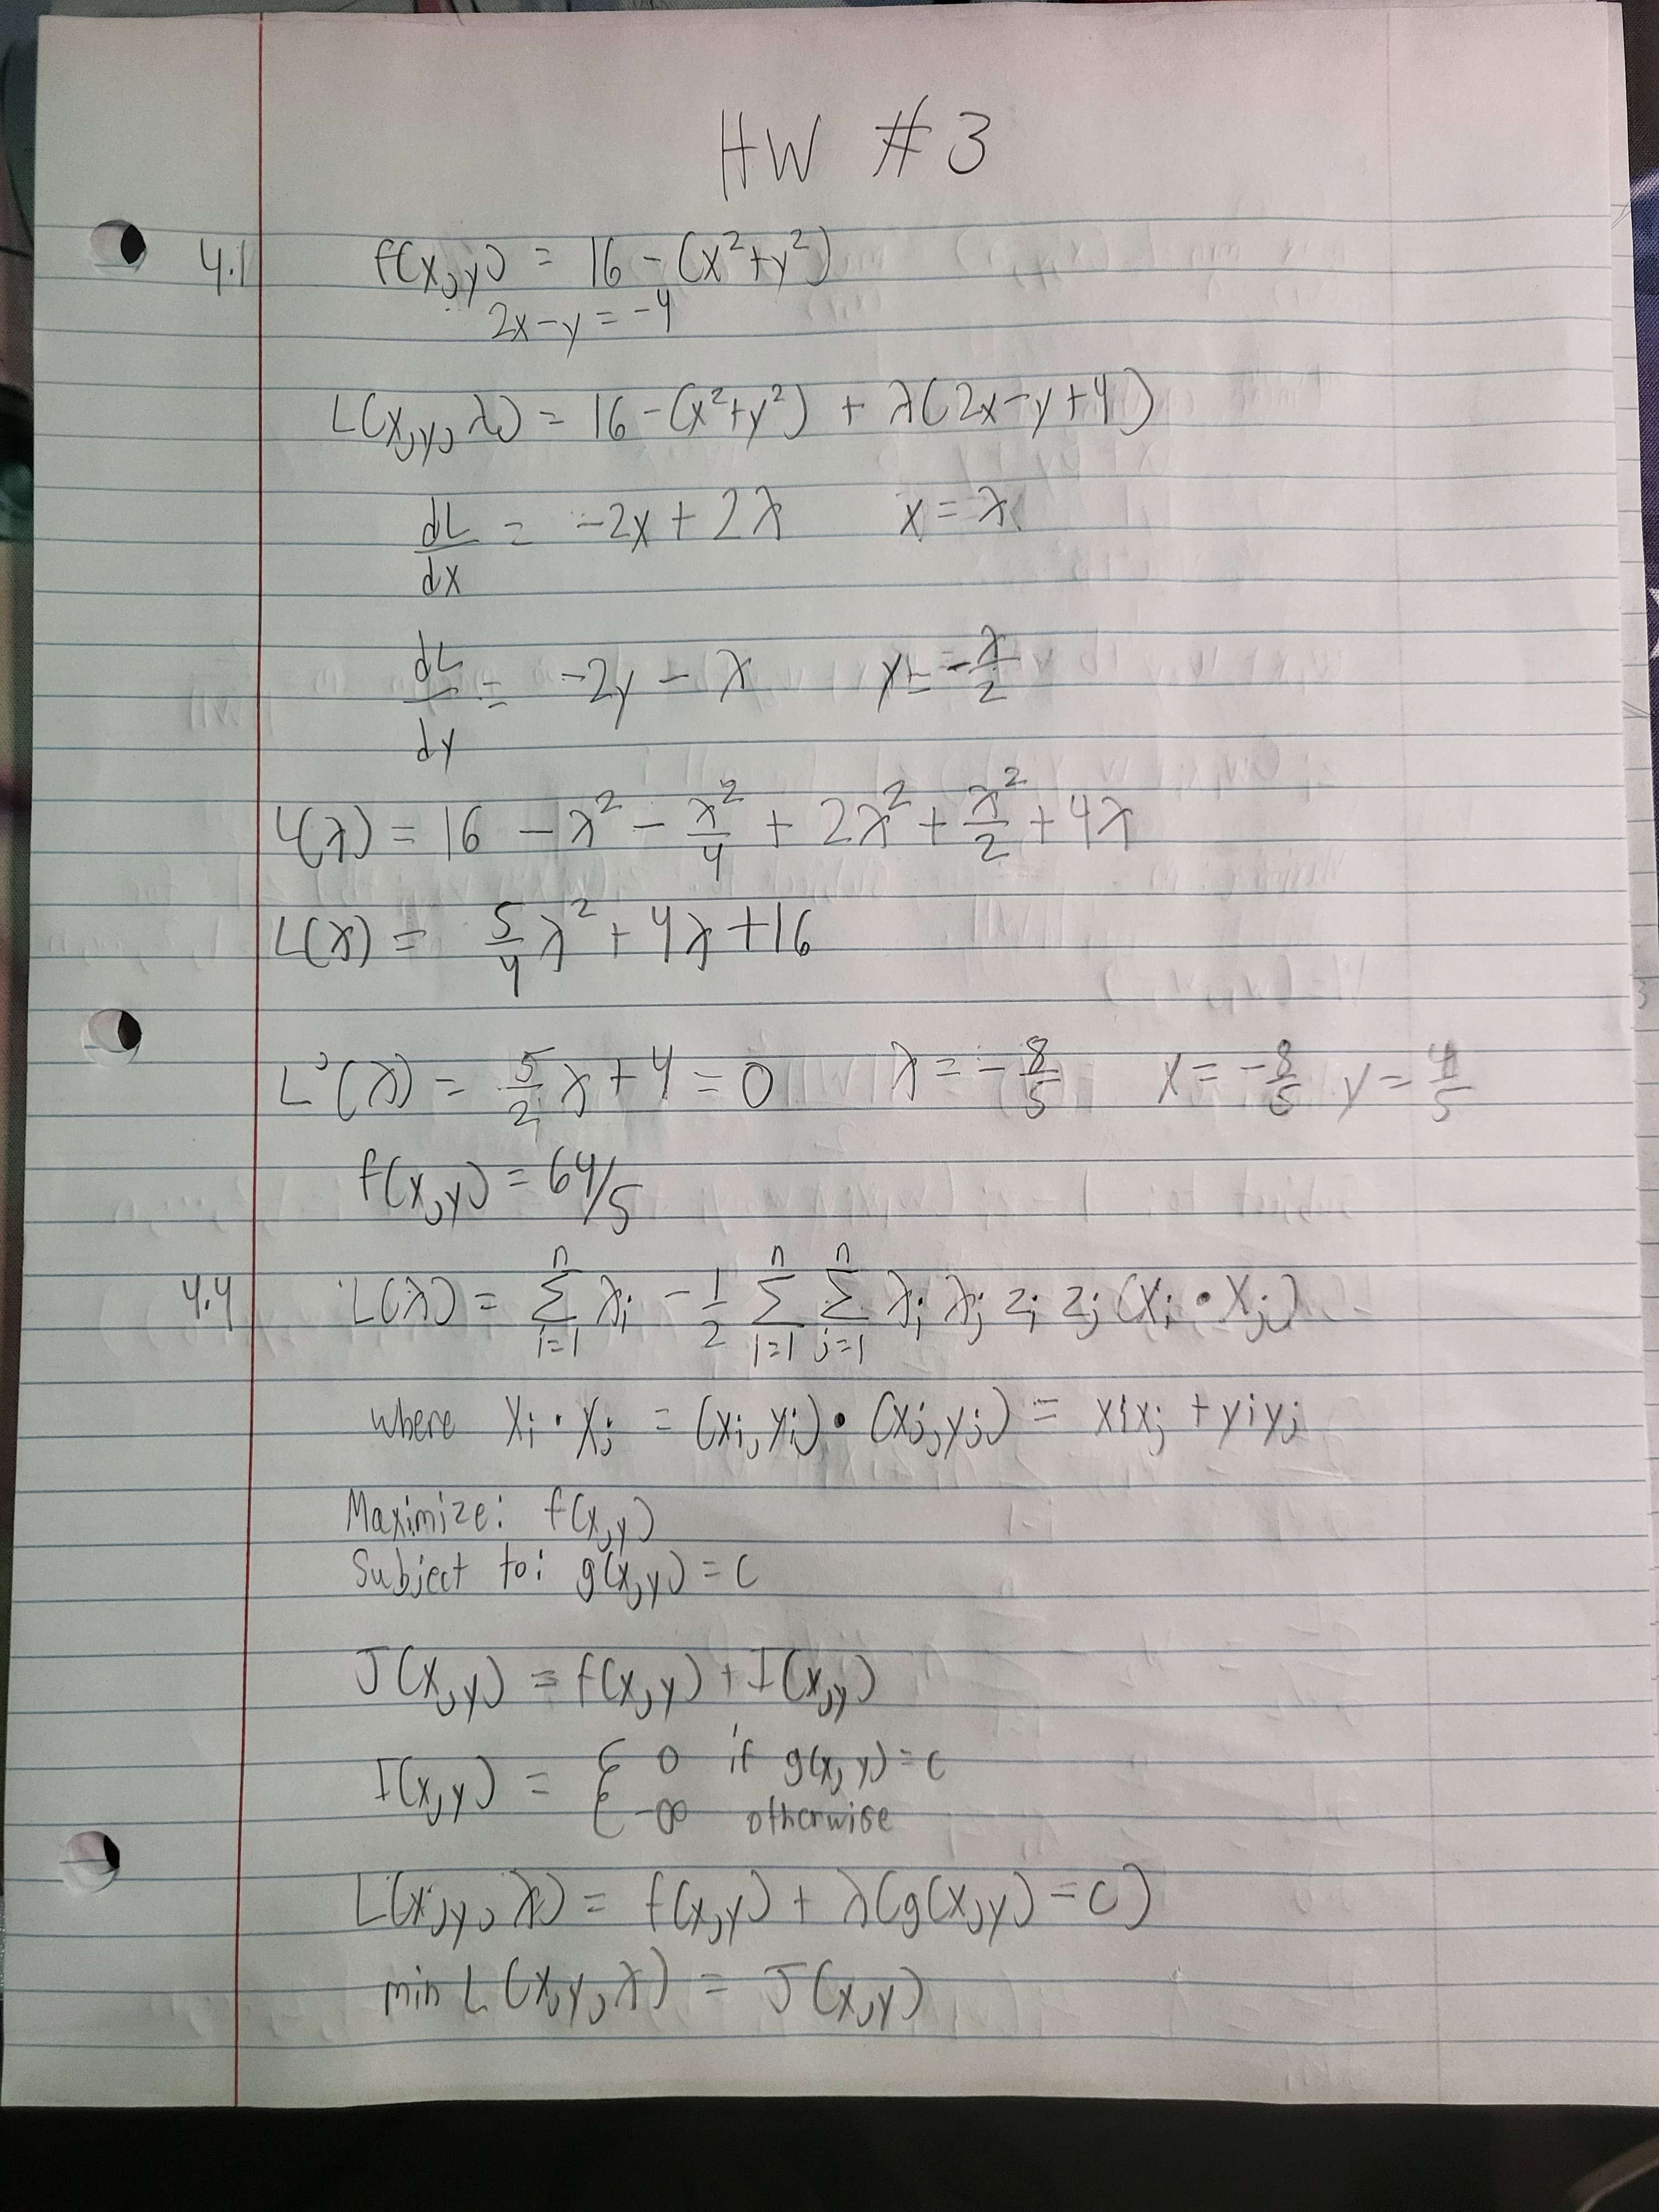 HW #3
4.1 f(x,y) = 16 - (x²+y²)
2x-y = -4
L(x,y,λ) = 16 - (x²+y²) + λ(2x-y+4)
dL/dx = -2x + 2λ x = λ
dL/dy = -2y - λ y = -λ/2
L(λ) = 16 - λ² - λ²/4 + 2λ² + λ²/2 + 4λ
L(λ) = 5/4 λ² + 4λ + 16
L'(λ) = 5/2 λ + 4 = 0 λ = -8/5 x = -8/5 y = 4/5
f(x,y) = 64/5
4.4 L(λ) = Σ_{i=1}^{n} λ_i - 1/2 Σ_{i=1}^{n} Σ_{j=1}^{n} λ_i λ_j z_i z_j (x_i • x_j)
where x_i • x_j = (x_i, y_i) • (x_j, y_j) = x_i x_j + y_i y_j
Maximize: f(x,y)
Subject to: g(x,y) = c
J(x,y) = f(x,y) + I(x,y)
I(x,y) = { 0 if g(x,y) = c
-∞ otherwise
L(x,y,λ) = f(x,y) + λ(g(x,y) - c)
min L(x,y,λ) = J(x,y)